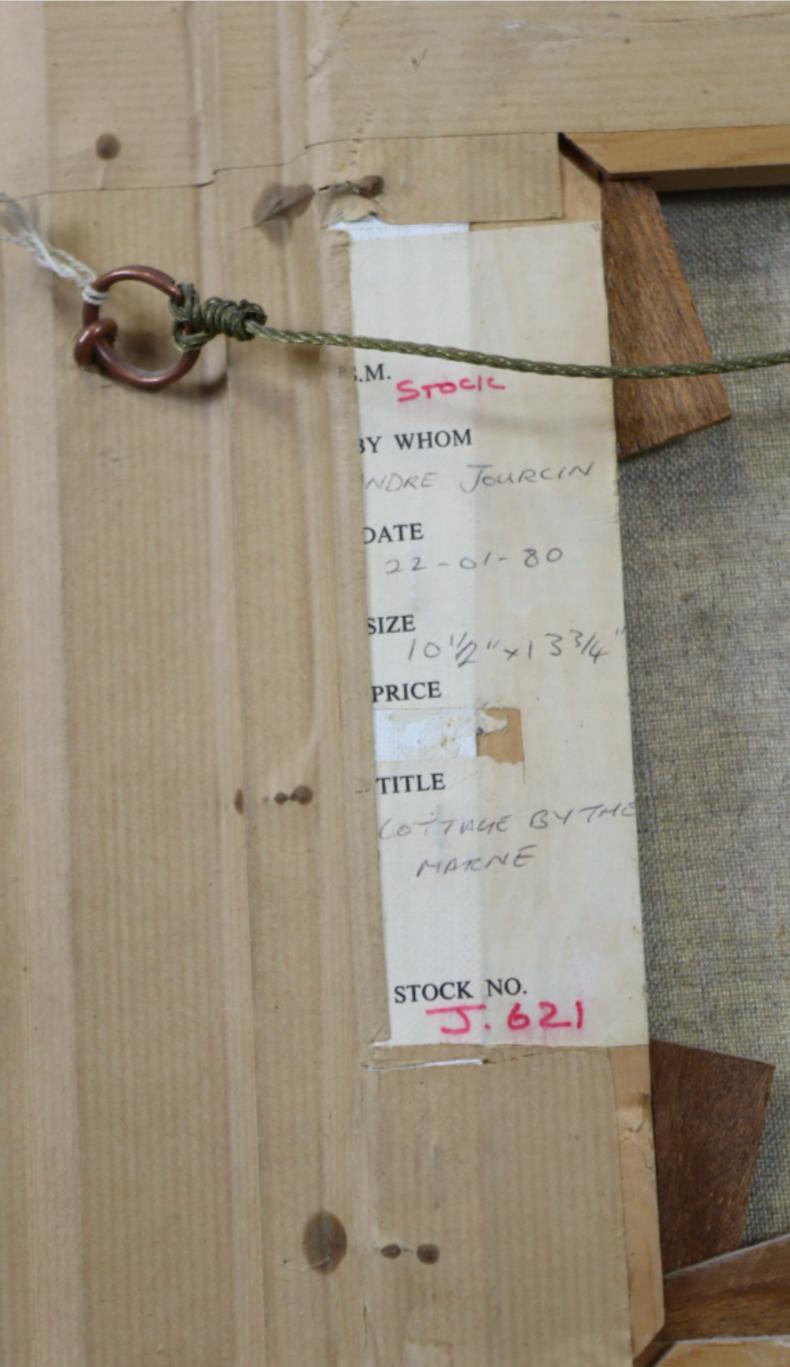 .M. STOCK
BY WHOM
NDRE JOURCIN
DATE
22-01-80
SIZE
10 1/2" x 13 3/4"
PRICE
TITLE
COTTAGE BY THE
MARNE
STOCK NO.
J. 621